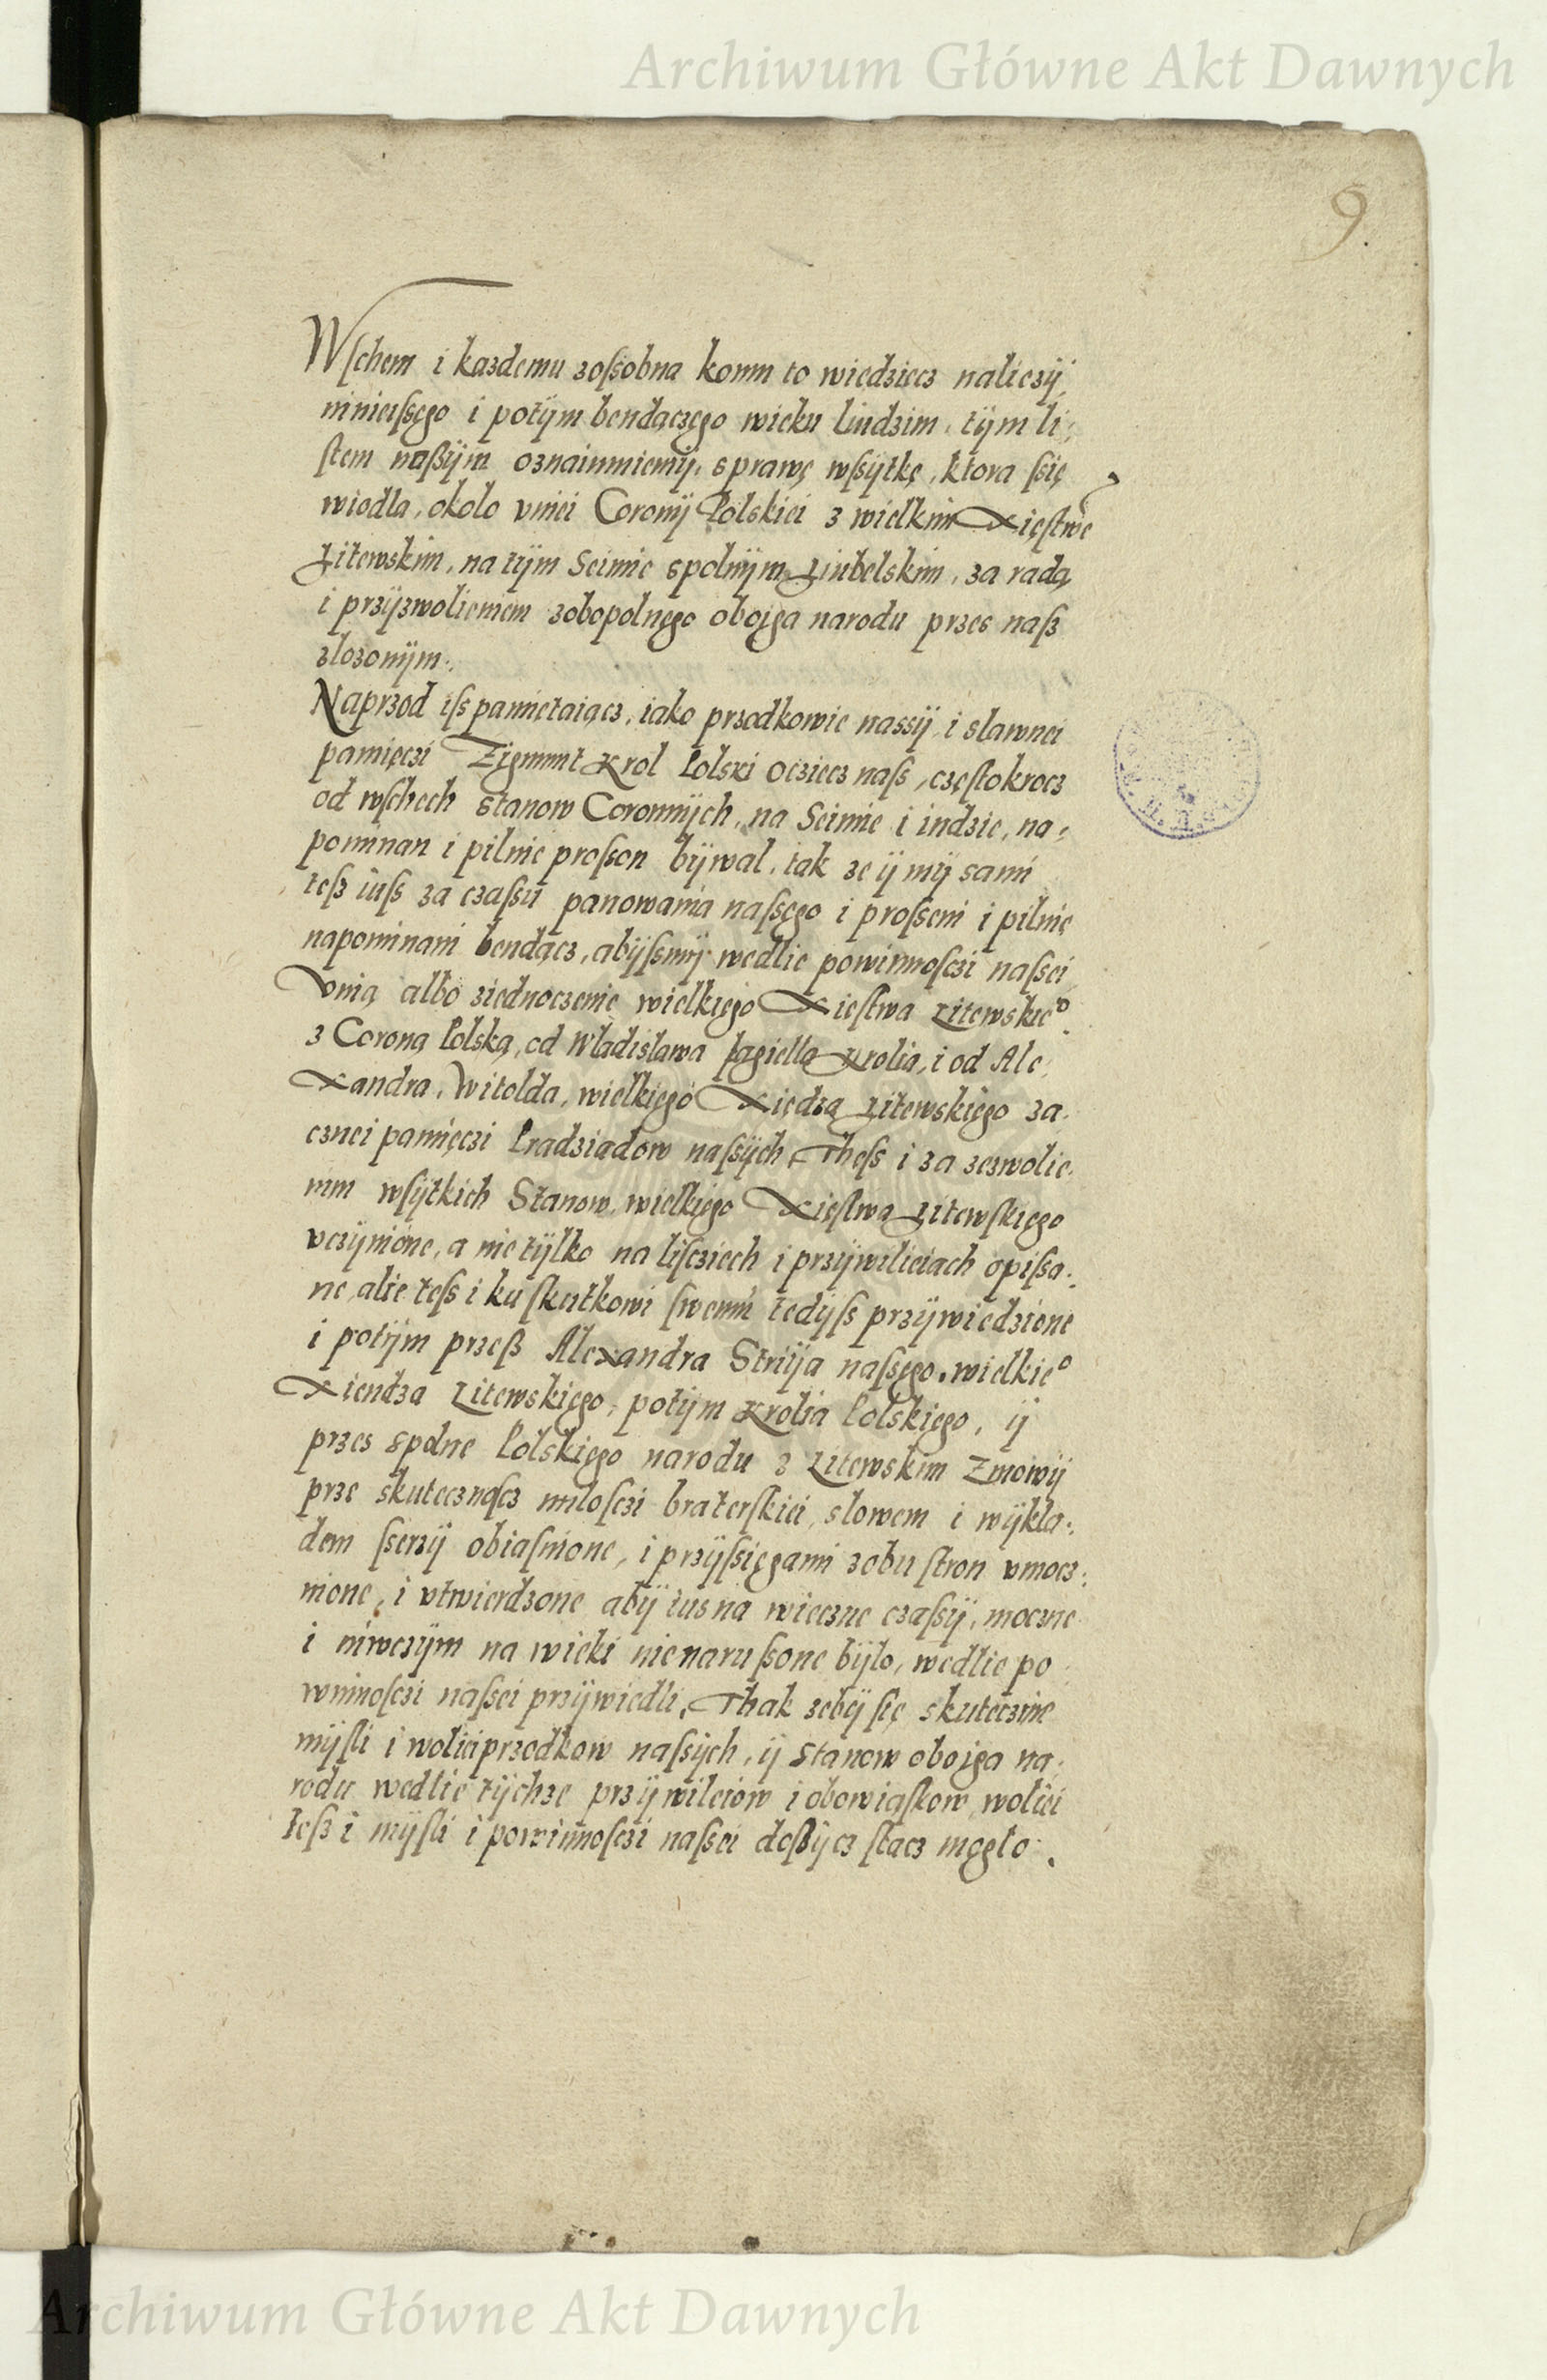 Archiwum Główne Akt Dawnych
9.
Wſchem i kazdemu zoſsobna komu to wiedziecz naliezÿ,
ninieiſsego i potÿm bendączego wieku liudzim, tÿm li:
ſtem naßÿm oznaimuiemÿ, sprawę wſsÿtkę, ktora ſsię
wiodla, okolo vniei Coronÿ Polskiei z wielkim Xięſtwē
Litewskim, na tÿm Seimie spolnÿm Liubelskim, za radą
i przÿzwolieniem zobopolnego obojga narodu przes naß
zlozonÿm.
Naprzod iſs pamiętaiącz, iako przodkowie nassÿ, i slawnei
pamięczi Zigmunt Krol Polski ocziecz naſs, częſtokrocz
od wſchech stanow Coronnÿch, na Seimie i indzie, na:
pominan i pilnie proſson bÿwal, tak ze ÿ mÿ sami
teß iuſs za czaſsu panowania naſsego i proſseni i pilnie
napominani bendącz, abÿſsmÿ wedlie powinnoſczi naſsei
Vnią albo ziednoczenie wielkiego Xieſtwa Litewskieº
z Coroną Polską, od Wladislawa Jagiella Krolia, i od Ale:
xandra, Witolda, wielkiego Xiędza Litewskiego za:
cznei pamięczi Pradziadow naſsÿch, Theſs i za zezwolie:
nim wſsÿtkich Stanow wielkiego Xięſtwa Litewſkiego
vczÿnione, a nie tÿlko na liſcziech i przÿwileiach opiſsa:
ne, alie teſs i ku ſkutkowi ſwemu tedÿſs przÿwiedzione
i potÿm przeß Alexandra Strÿia naſsego, wielkieº
Xiendza Litewskiego, potÿm Krolia Polskiego, ÿ
przes spolne Polskiego narodu z Litewskim Zmowÿ
prze skutecznoſcz miloſczi braterſkiei, slowem i wÿkla:
dem ſserzÿ obiaſnione, i przÿſsięgami zobu ſtron vmocz:
nione, i vtwierdzone abÿ ius na wieczne czaſsÿ, moczne
i niwczÿm na wieki nienaruſsone bÿlo, wedlie po:
winnoſczi naſsei przÿwiedli, Thak zebÿ ſię skutecznie
mÿſli i woliei przodkow naſsÿch, ÿ stanow obojga na:
rodu wedlie tÿchze przÿwileiow i obowiąſkow, woliei
teß i mÿſli i powinnoſczi naſsei doßÿcz ſtacz mogło.
Archiwum Główne Akt Dawnych